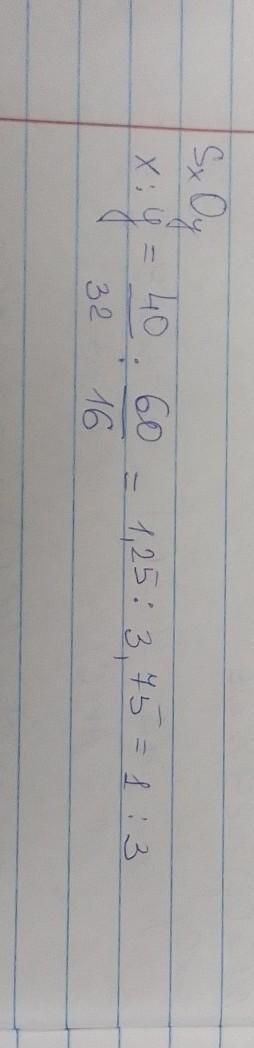 SxOy
x : y = 40/32 : 60/16 = 1,25 : 3,75 = 1 : 3